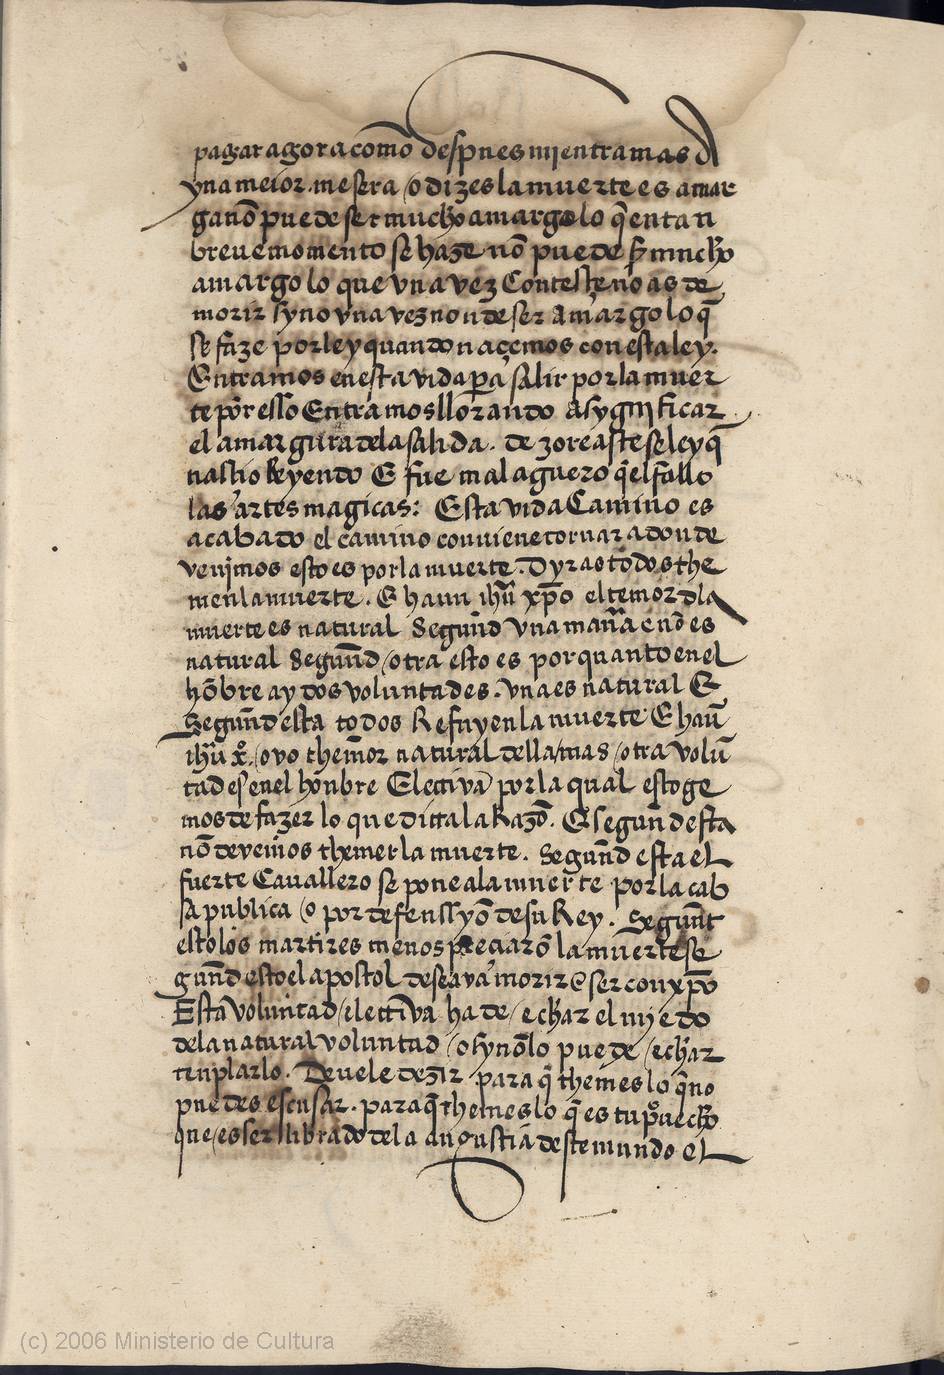 pagar agora como despues mientra mas a
yna meior me sera / o dizes la muerte es amar
ga nõ puede ser mucho amargo lo q̃ en tan
breve momento se haze nõ puede ser mucho
amargo lo que vna vez Conteste no as de
morir syno vna vez non de ser amargo lo q̃
se faze por ley quando naçemos con esta ley.
Entramos en esta vida pa salir por la muer
te por esso Entramos llorando a sygnificar
el amargura de la salida. de zoreastes se ley q̃
nasçio Reyendo E fue mal aguero q̃ el fallo
las artes magicas: Esta vida Camino es
acabado el camino conviene tornar a donde
venimos esto es por la muerte. Dyras todos the
men la muerte. E haun ihũ xp̃o el temor dla
muerte es natural Segund vna mañã e nõ es
natural Segund / otra esto es por quanto en el
hõbre ay dos voluntades. vna es natural E
Segund esta todos Refuyen la muerte E haũ
ihũ xº. / ovo themor natural della / mas / otra volũ
tad es en el honbre Electiva por la qual escoge
mos de fazer lo que dicta la Razõ. E segund esta
nõ devemos themer la muerte. Segund esta el
fuerte Cavallero se pone a la muerte por la cab
sa publica / o por defenssyõ de su Rey. Segunt
esto los martires menospreciarõ la muerte se
gund esto el apostol deseava morir e ser con xp̃o
Esta voluntad / electiva ha de / echar el miedo
de la natural voluntad / o sy nõ lo puede / echar
tenplarlo. Devele dezir para q̃ themes lo q̃ no
puedes escusar. para q̃ themes lo q̃ es tu pvecho
que / es ser librado de la angustia deste mundo el
(c) 2006 Ministerio de Cultura